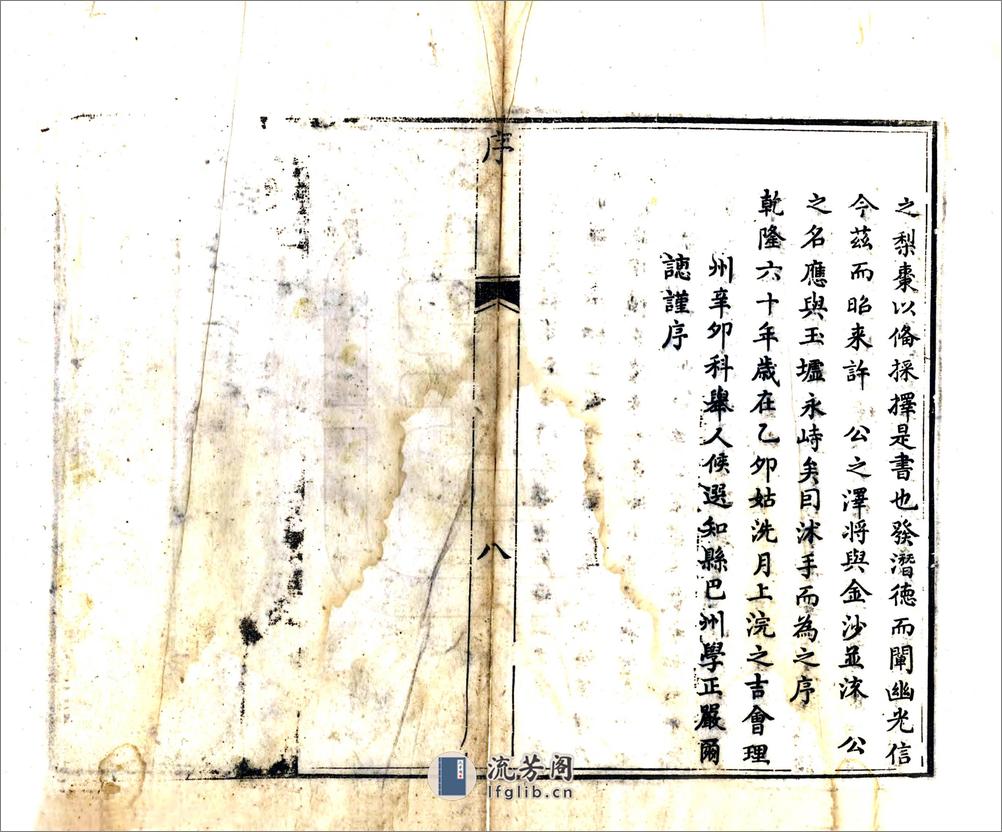 之梨棗以俻採擇是書也發潛德而闡幽光信
今茲而昭来許 公之澤將與金沙並流 公
之名應與玉壚永峙矣囙沐手而為之序
乾隆六十年歲在乙卯姑洗月上浣之吉會理
州辛卯科舉人候選知縣巴州學正嚴爾
譓謹序
序
八
流芳阁
lfglib.cn